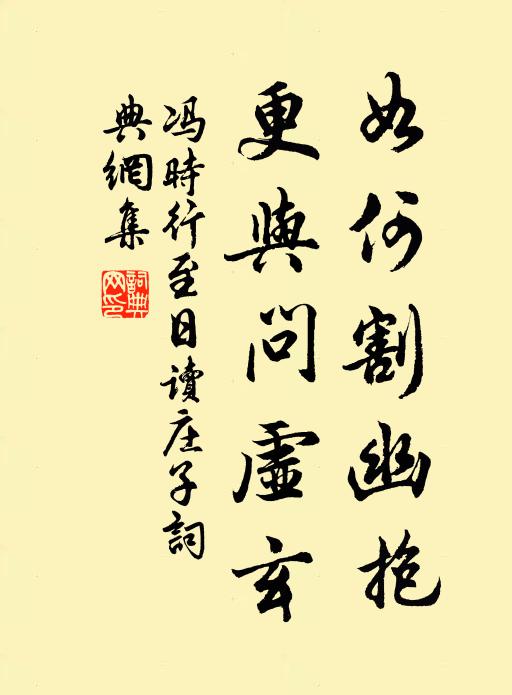 如何割幽抱
更與问虛玄
冯時行至日讀庄子詞
典網集
詞典
网印